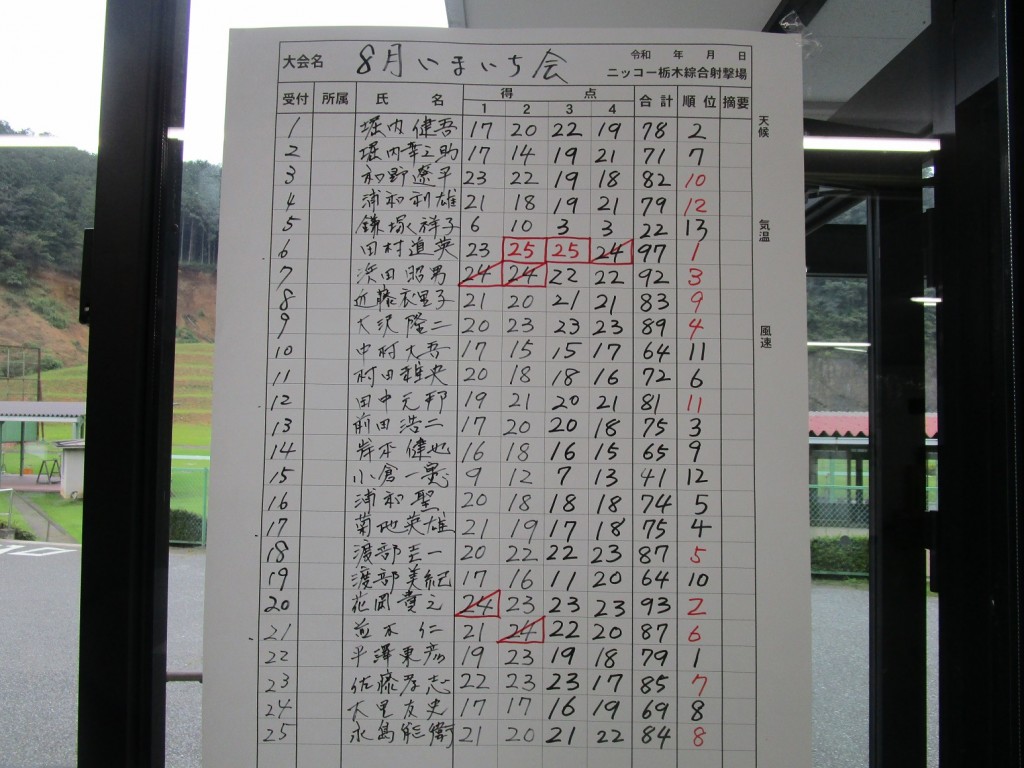 令和 年 月 日
大会名 8月いまいち会 ニッコー栃木綜合射撃場
受付 所属 氏 名 得 点 合計 順位 摘要
1 2 3 4
天候
1 堀内健吾 17 20 22 19 78 2
2 堀内幸之助 17 14 19 21 71 7
3 初野遼平 23 22 19 18 82 10
4 浦和利雄 21 18 19 21 79 12
5 鎌塚祥子 6 10 3 3 22 13
気温
6 田村道英 23 25 25 24 97 1
7 浜田昭男 24 24 22 22 92 3
8 近藤衣里子 21 20 21 21 83 9
9 大沢隆二 20 23 23 23 89 4
風速
10 中村大吾 17 15 15 17 64 11
11 村田雅央 20 18 18 16 72 6
12 田中元邦 19 21 20 21 81 11
13 前田浩二 17 20 20 18 75 3
14 岸本健也 16 18 16 15 65 9
15 小倉一 9 12 7 13 41 12
16 浦和聖 20 18 18 18 74 5
17 菊地英雄 21 19 17 18 75 4
18 渡部圭一 20 22 22 23 87 5
19 渡部美紀 17 16 11 20 64 10
20 花岡貴之 24 23 23 23 93 2
21 並木仁 21 24 22 20 87 6
22 平澤東彦 19 23 19 18 79 1
23 佐藤孝志 22 23 23 17 85 7
24 大里友史 17 17 16 19 69 8
25 永島 衛 21 20 21 22 84 8